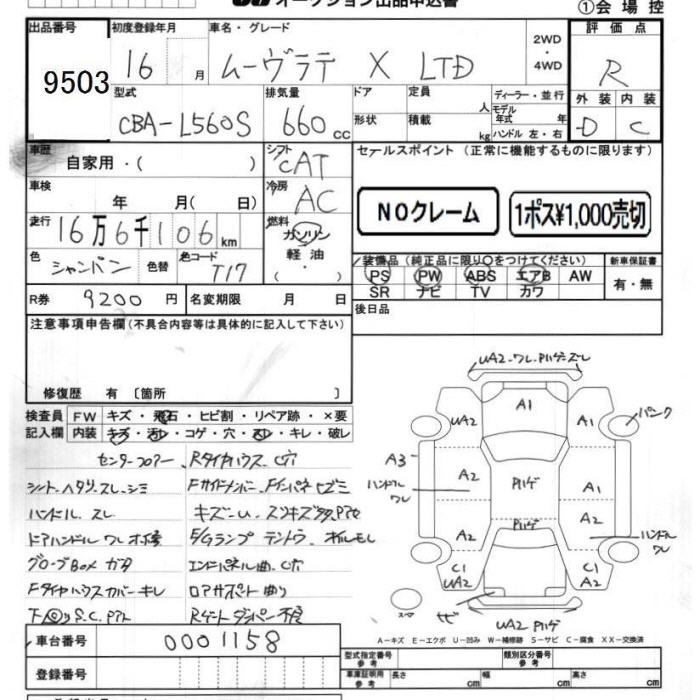 オークション出品申込書
①会場控
出品番号 初度登録年月 車名・グレード 2WD・4WD 評価点
9503 16 月 ムーヴラテ X LTD R
型式 排気量 ドア 定員 人 ディーラー・並行 外装 内装
CBA-L560S 660cc 形状 積載 kg モデル年式 年 ハンドル 左・右 D C
車歴 自家用・( ) シフト CAT セールスポイント (正常に機能するものに限ります)
車検 年 月( 日) 冷房 AC NOクレーム 1ポス¥1,000売切
走行 16万6千106km 燃料 ガソリン 軽油・( )
色 シャンパン 色替 色コード T17 装備品(純正品に限り○をつけてください) 新車保証書
PS PW ABS エアB AW 有・無
SR ナビ TV カワ
R券 9200円 名変期限 月 日 後日品
注意事項申告欄(不具合内容等は具体的に記入して下さい)
修復歴 有 〔箇所 〕
検査員記入欄 FW キズ・飛石・ヒビ割・リペア跡・×要
内装 キズ・汚レ・コゲ・穴・スレ・キレ・破レ
センターフロアー Rタイヤハウス C穴
シート ヘタリ スレ シミ
ハンドル スレ
ドアハンドル ワレ
グローブBOX ガタ エンドパネル曲 C穴
Fタイヤハウスカバーキレ ロアサポート曲り
Rゲートダンパー不良
UA2
A1
UA2 A1 パンク
A3
ハンドルワレ A2 A1
A2 A2 ハンドルワレ
C1 UA2 C1 A2
スペア サビ
UA2
A-キズ E-エクボ U-凹み W-補修跡 S-サビ C-腐食 XX-交換済
車台番号 0001158
型式指定番号 参考 類別区分番号 参考
登録番号 車庫証明用 参考 長さ cm 幅 cm 高さ cm